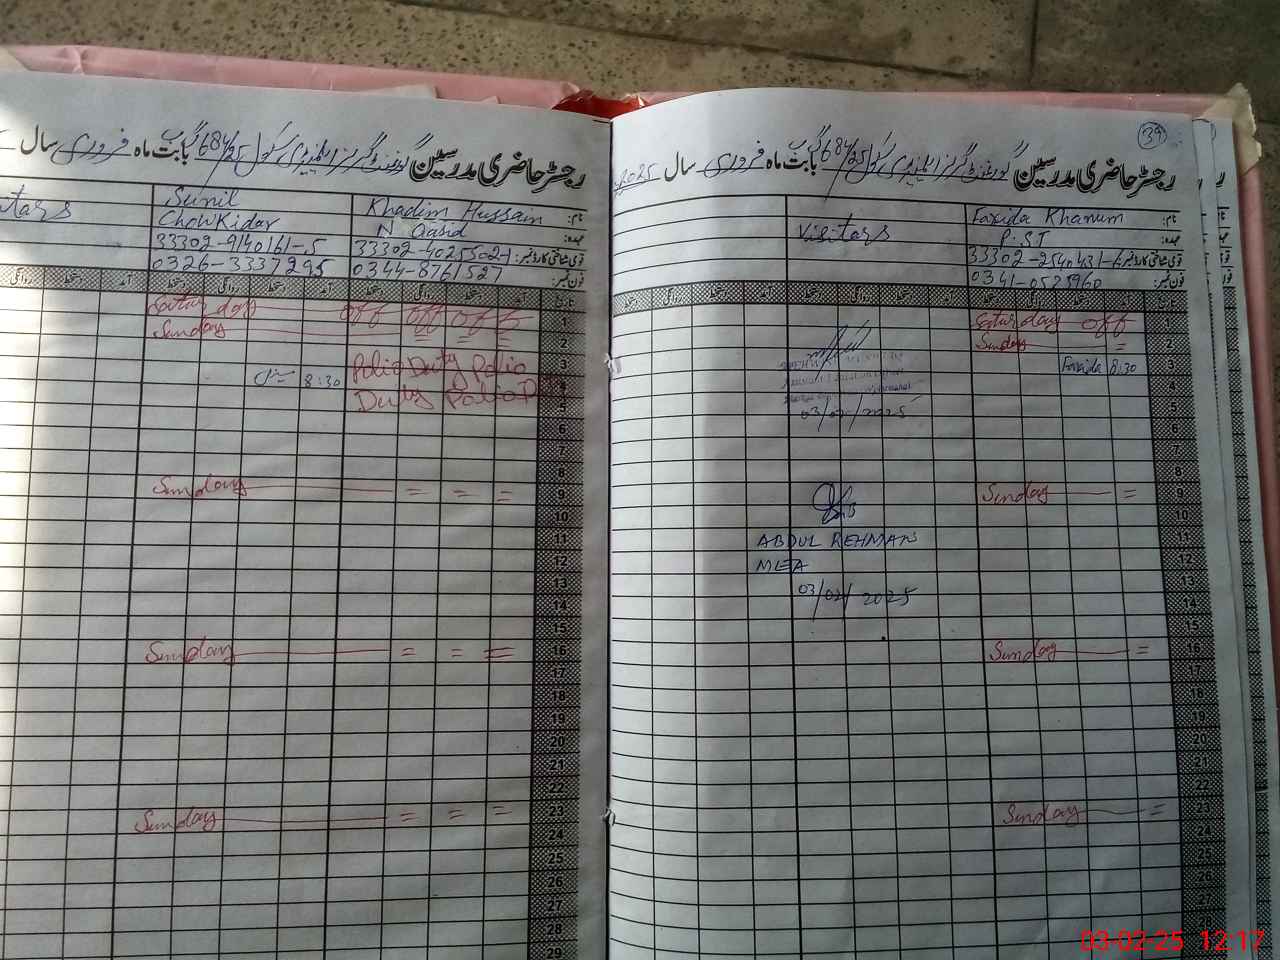 رجسٹر حاضری مدرسین گورنمنٹ گرلز ایلیمنٹری سکول 684/25 گ ب بابت ماہ فروری سال
نام: Khadim Hussain Sunil
عہدہ: N Qasid Chowkidar
قومی شناختی کارڈ نمبر: 33302-4025502-1 33302-9140161-5
فون نمبر: 0344-8761527 0326-3337295
تاریخ آمد دستخط روانگی دستخط آمد دستخط روانگی دستخط آمد دستخط روانگی
1 Saturday off off off
2 Sunday = = =
3 Polio Duty Polio
4 Duty Polio 8:30
5
6
7
8
9 Sunday = = =
10
11
12
13
14
15
16 Sunday = = =
17
18
19
20
21
22
23 Sunday = = =
24
25
26
27
28
29
39
رجسٹر حاضری مدرسین گورنمنٹ گرلز ایلیمنٹری سکول 684/25 گ ب بابت ماہ فروری سال 2025
نام: Farida Khanum
عہدہ: P.ST Visitars
قومی شناختی کارڈ نمبر: 33302-2540431-6
فون نمبر: 0341-0525960
تاریخ آمد دستخط روانگی دستخط آمد دستخط روانگی دستخط
1 Saturday off
2 Sunday =
3 Farida 8:30
4
5 03/02/2025
6
7
8
9 Sunday =
10
11 ABDUL REHMAN
12 MEA
13 03/02/2025
14
15
16 Sunday =
17
18
19
20
21
22
23 Sunday =
24
25
26
27
28
03-02-25 12:17